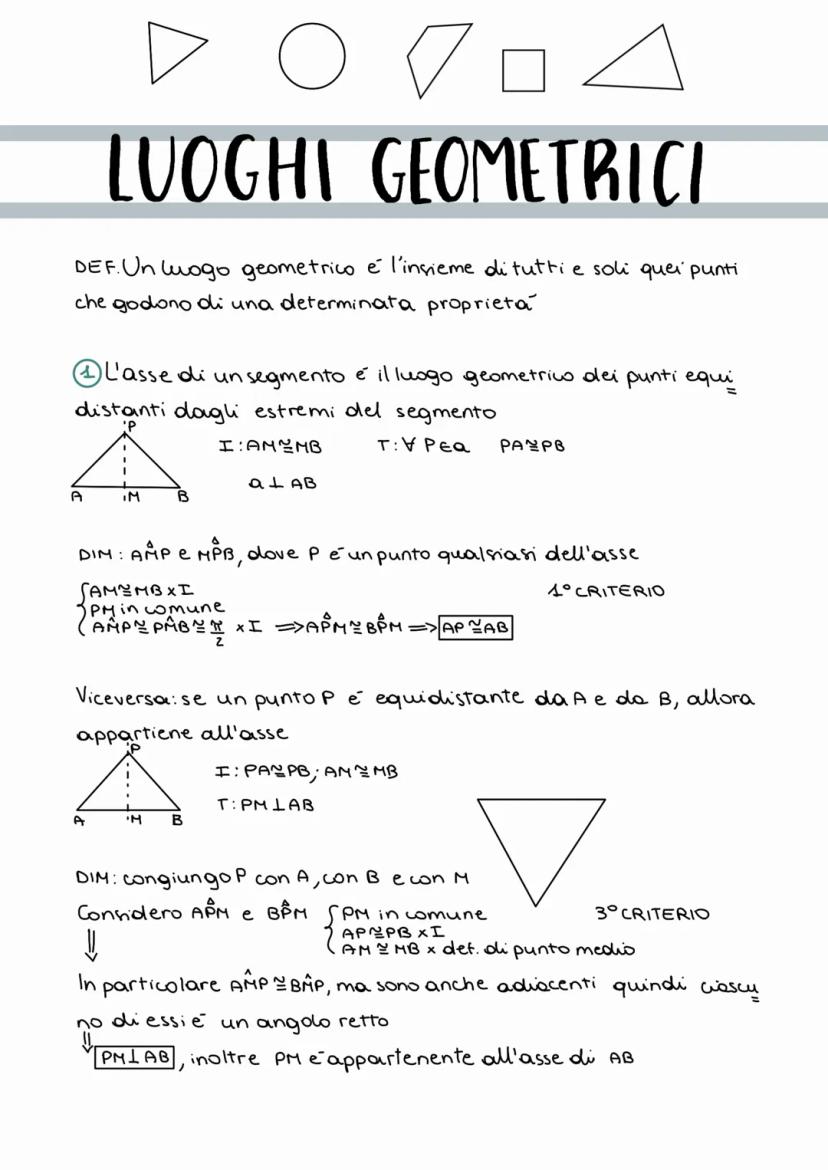 LUOGHI GEOMETRICI
DEF. Un luogo geometrico é l'insieme di tutti e soli quei punti
che godono di una determinata proprietà
1 L'asse di un segmento é il luogo geometrico dei punti equi
distanti dagli estremi del segmento
P
I: AM≅MB T: ∀ P∈a PA≅PB
A M B a⊥AB
DIM: AM̂P e MP̂B, dove P é un punto qualsiasi dell'asse
{AM≅MB x I 1° CRITERIO
PM in comune
AM̂P≅PM̂B≅π/2 x I ⇒AP̂M≅BP̂M⇒AP≅AB
Viceversa: se un punto P é equidistante da A e da B, allora
appartiene all'asse
P
I: PA≅PB; AM≅MB
T: PM⊥AB
A M B
DIM: congiungo P con A, con B e con M
Considero AP̂M e BP̂M {PM in comune 3° CRITERIO
⇓ AP≅PB x I
AM≅MB x def. di punto medio
In particolare AM̂P≅BM̂P, ma sono anche adiacenti quindi ciascu
no di essi é un angolo retto
⇓
PM⊥AB, inoltre PM é appartenente all'asse di AB